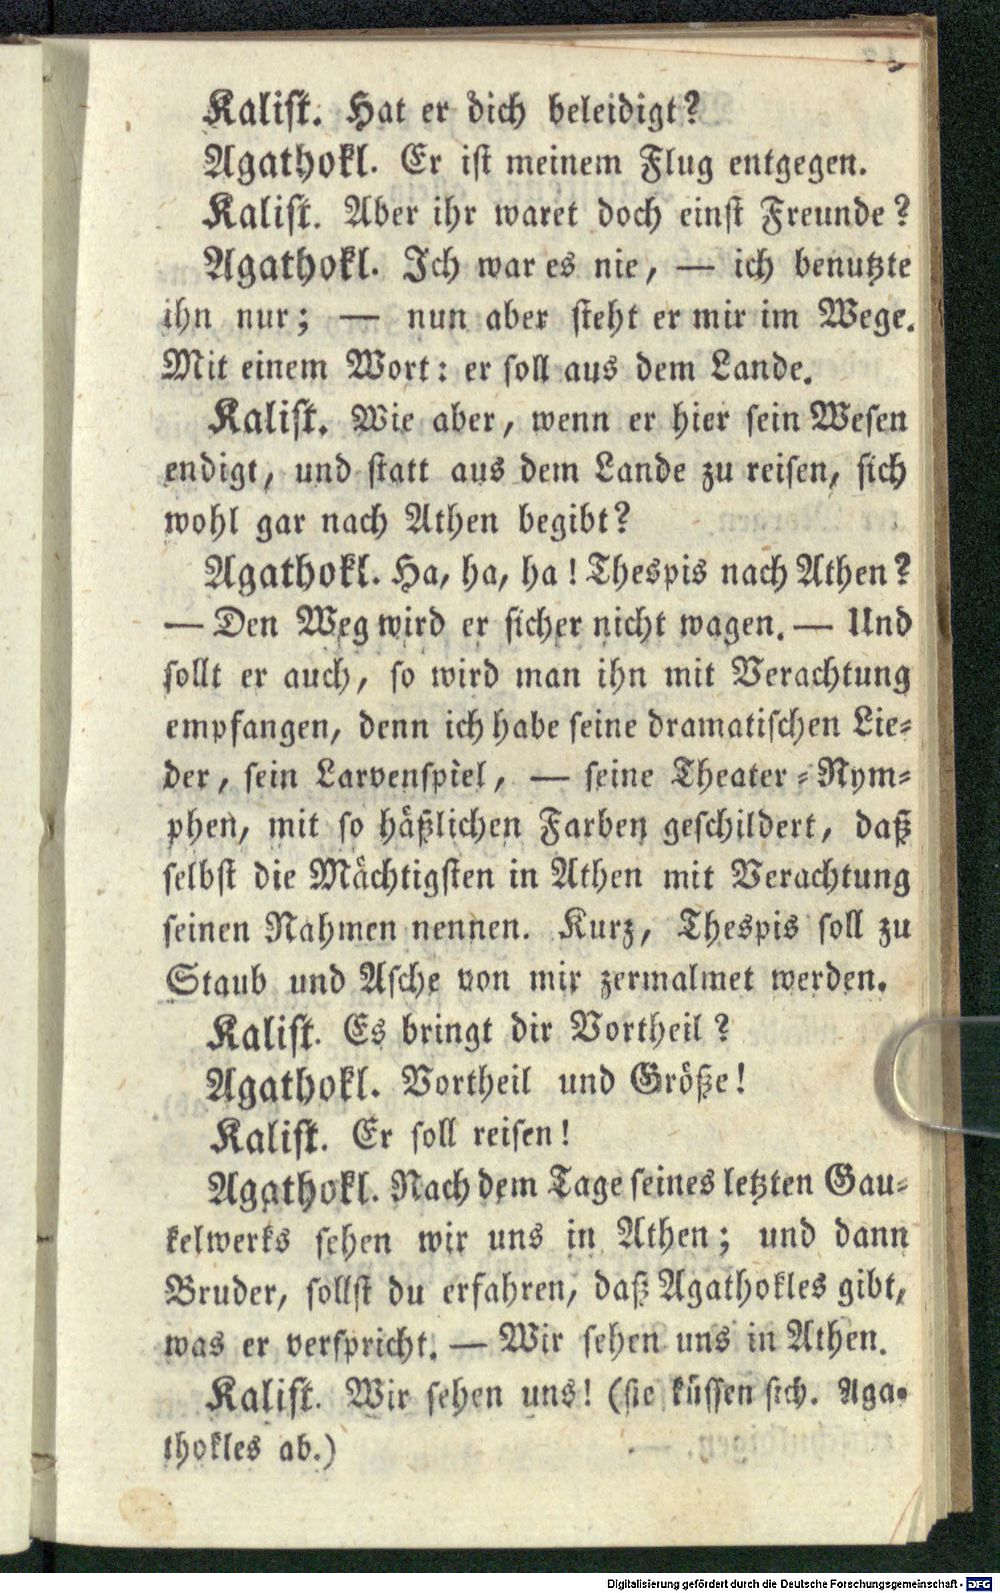 Kalist. Hat er dich beleidigt?
Agathokl. Er ist meinem Flug entgegen.
Kalist. Aber ihr waret doch einst Freunde?
Agathokl. Ich war es nie, — ich benutzte
ihn nur; — nun aber steht er mir im Wege.
Mit einem Wort: er soll aus dem Lande.
Kalist. Wie aber, wenn er hier sein Wesen
endigt, und statt aus dem Lande zu reisen, sich
wohl gar nach Athen begibt?
Agathokl. Ha, ha, ha! Thespis nach Athen?
— Den Weg wird er sicher nicht wagen. — Und
sollt er auch, so wird man ihn mit Verachtung
empfangen, denn ich habe seine dramatischen Lie-
der, sein Larvenspiel, — seine Theater-Nym-
phen, mit so häßlichen Farben geschildert, daß
selbst die Mächtigsten in Athen mit Verachtung
seinen Nahmen nennen. Kurz, Thespis soll zu
Staub und Asche von mir zermalmet werden.
Kalist. Es bringt dir Vortheil?
Agathokl. Vortheil und Größe!
Kalist. Er soll reisen!
Agathokl. Nach dem Tage seines letzten Gau-
kelwerks sehen wir uns in Athen; und dann
Bruder, sollst du erfahren, daß Agathokles gibt,
was er verspricht. — Wir sehen uns in Athen.
Kalist. Wir sehen uns! (sie küssen sich. Aga-
thokles ab.)
Digitalisierung gefördert durch die Deutsche Forschungsgemeinschaft - DFG